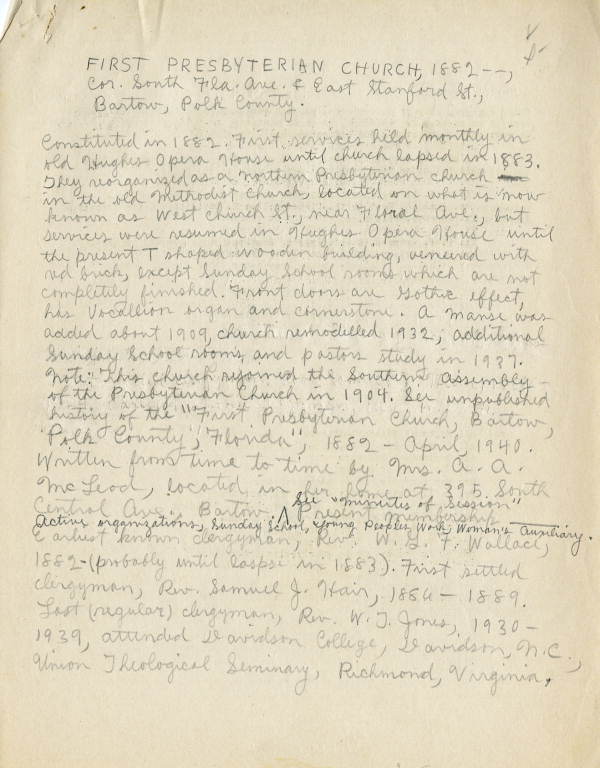 FIRST PRESBYTERIAN CHURCH, 1882 --,
Cor. South Fla. Ave. & East Stanford St.,
Bartow, Polk County.
Constituted in 1882. First services held monthly in
old Hughes Opera House until church lapsed in 1883.
They reorganized as a northern Presbyterian church
in the old Methodist Church, located on what is now
known as West Church St., near Floral Ave., but
services were resumed in Hughes Opera House until
the present T shaped wooden building, veneered with
red brick, except Sunday School rooms which are not
completely finished. Front doors are Gothic effect,
has Vocallion organ and cornerstone. A manse was
added about 1909, church remodelled 1932, additional
Sunday School rooms, and pastors study in 1937.
Note: This church rejoined the Southern Assembly
of the Presbyterian Church in 1904. See unpublished
history of the "First Presbyterian Church, Bartow,
"Polk County", Florida", 1882 - April, 1940.
Written from time to time by Mrs. A. A.
McLeod, located in her home at 395 South
Central Ave., Bartow. See "Minutes of Session" Present Membership
Active organizations, Sunday School, Young Peoples Work, Woman's Auxiliary.
Earliest known clergyman, Rev. W. G. F. Wallace,
1882-(probably until laspse in 1883). First settled
clergyman, Rev. Samuel J. Hair, 1886 - 1889.
Last (regular) clergyman, Rev. W. T. Jones, 1930 -
1939, attended Davidson College, Davidson, N.C.,
Union Theological Seminary, Richmond, Virginia.